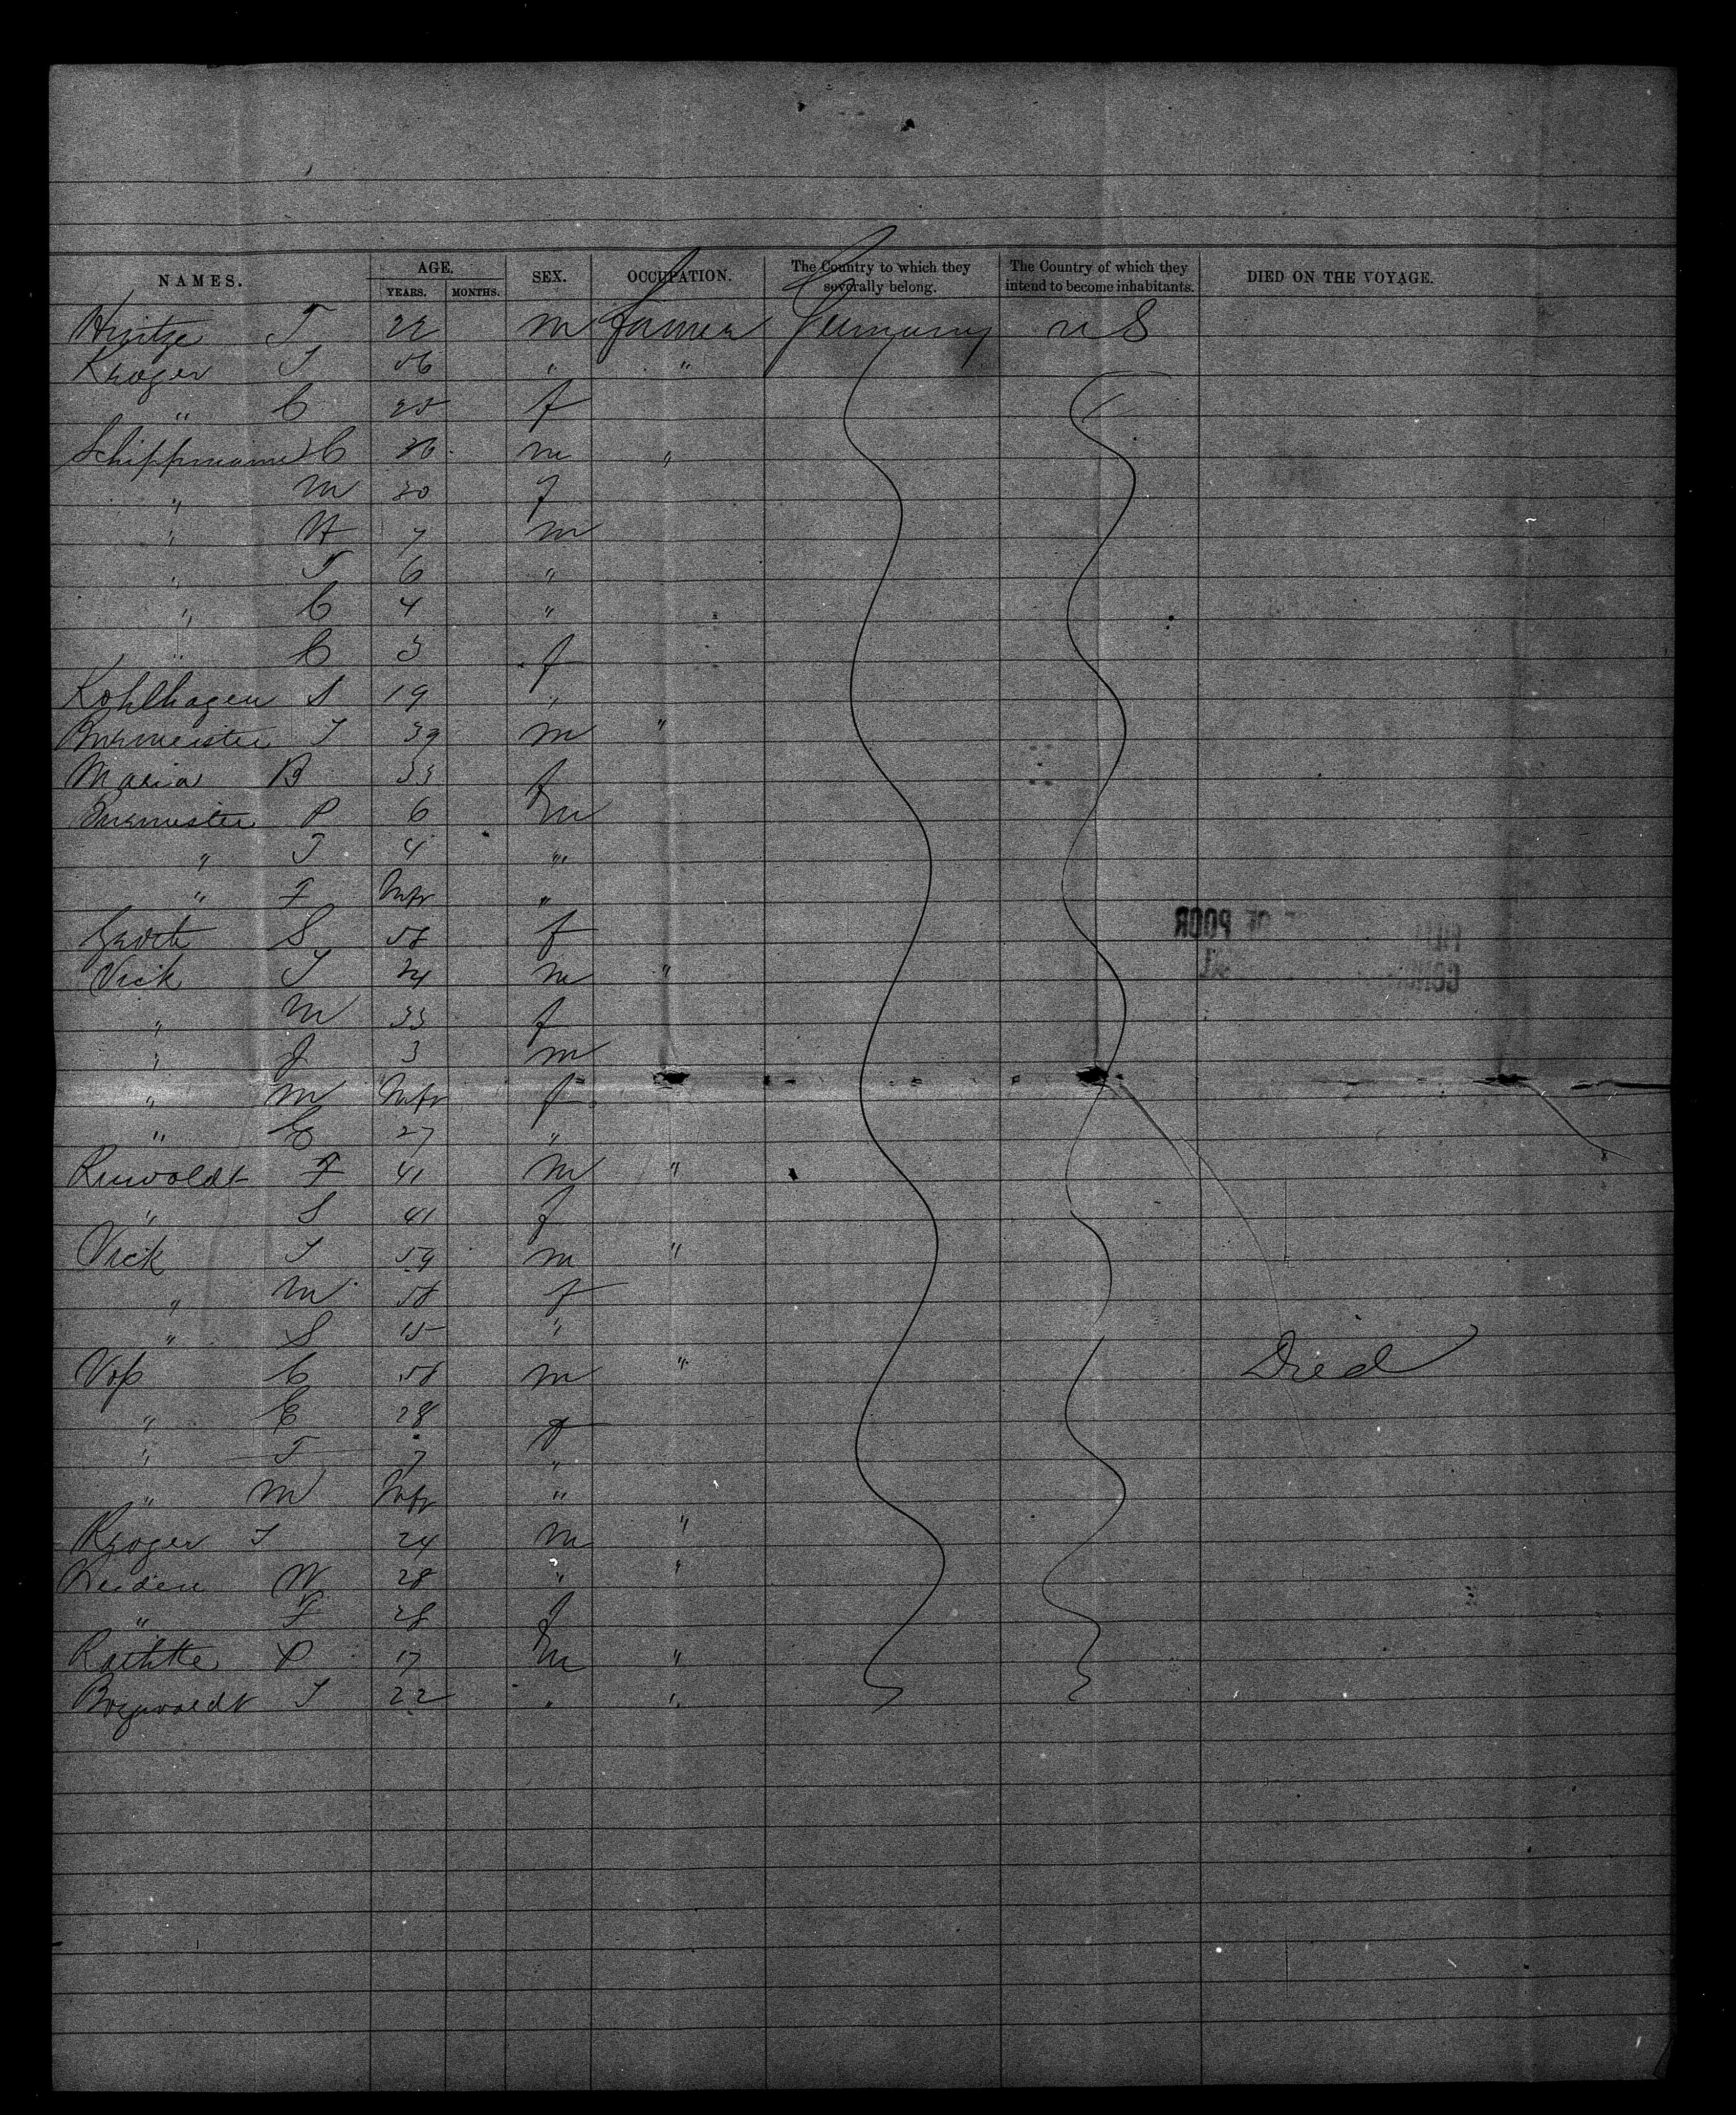 NAMES. AGE. SEX. OCCUPATION. The Country to which they severally belong. The Country of which they intend to become inhabitants. DIED ON THE VOYAGE.
YEARS. MONTHS.
Hintze T 22 m Farmer Germany U S
Kroger J 56 " "
" C 25 f
Schippmann C 36 m "
" M 30 f
" H 7 m
" T 6 "
" C 4 "
" C 3 f
Kohlhagen S 19 "
Burmeister J 39 m "
Maria B 33 f
Burmeister P 6 m
" J 4 "
" F Infr "
Groth S 58 f
Vick J 34 m "
" M 33 f
" J 3 m
" M Infr f
" E 27 "
F 41 m "
" S 41 f
Vick J 59 m "
" M 58 f
" S 15 "
Voß C 58 m " Died
" E 28 f
" F 7 "
" M Infr "
Kroger J 24 m "
W 28 " "
" F 28 f
Rathke P 17 m "
J 22 " "